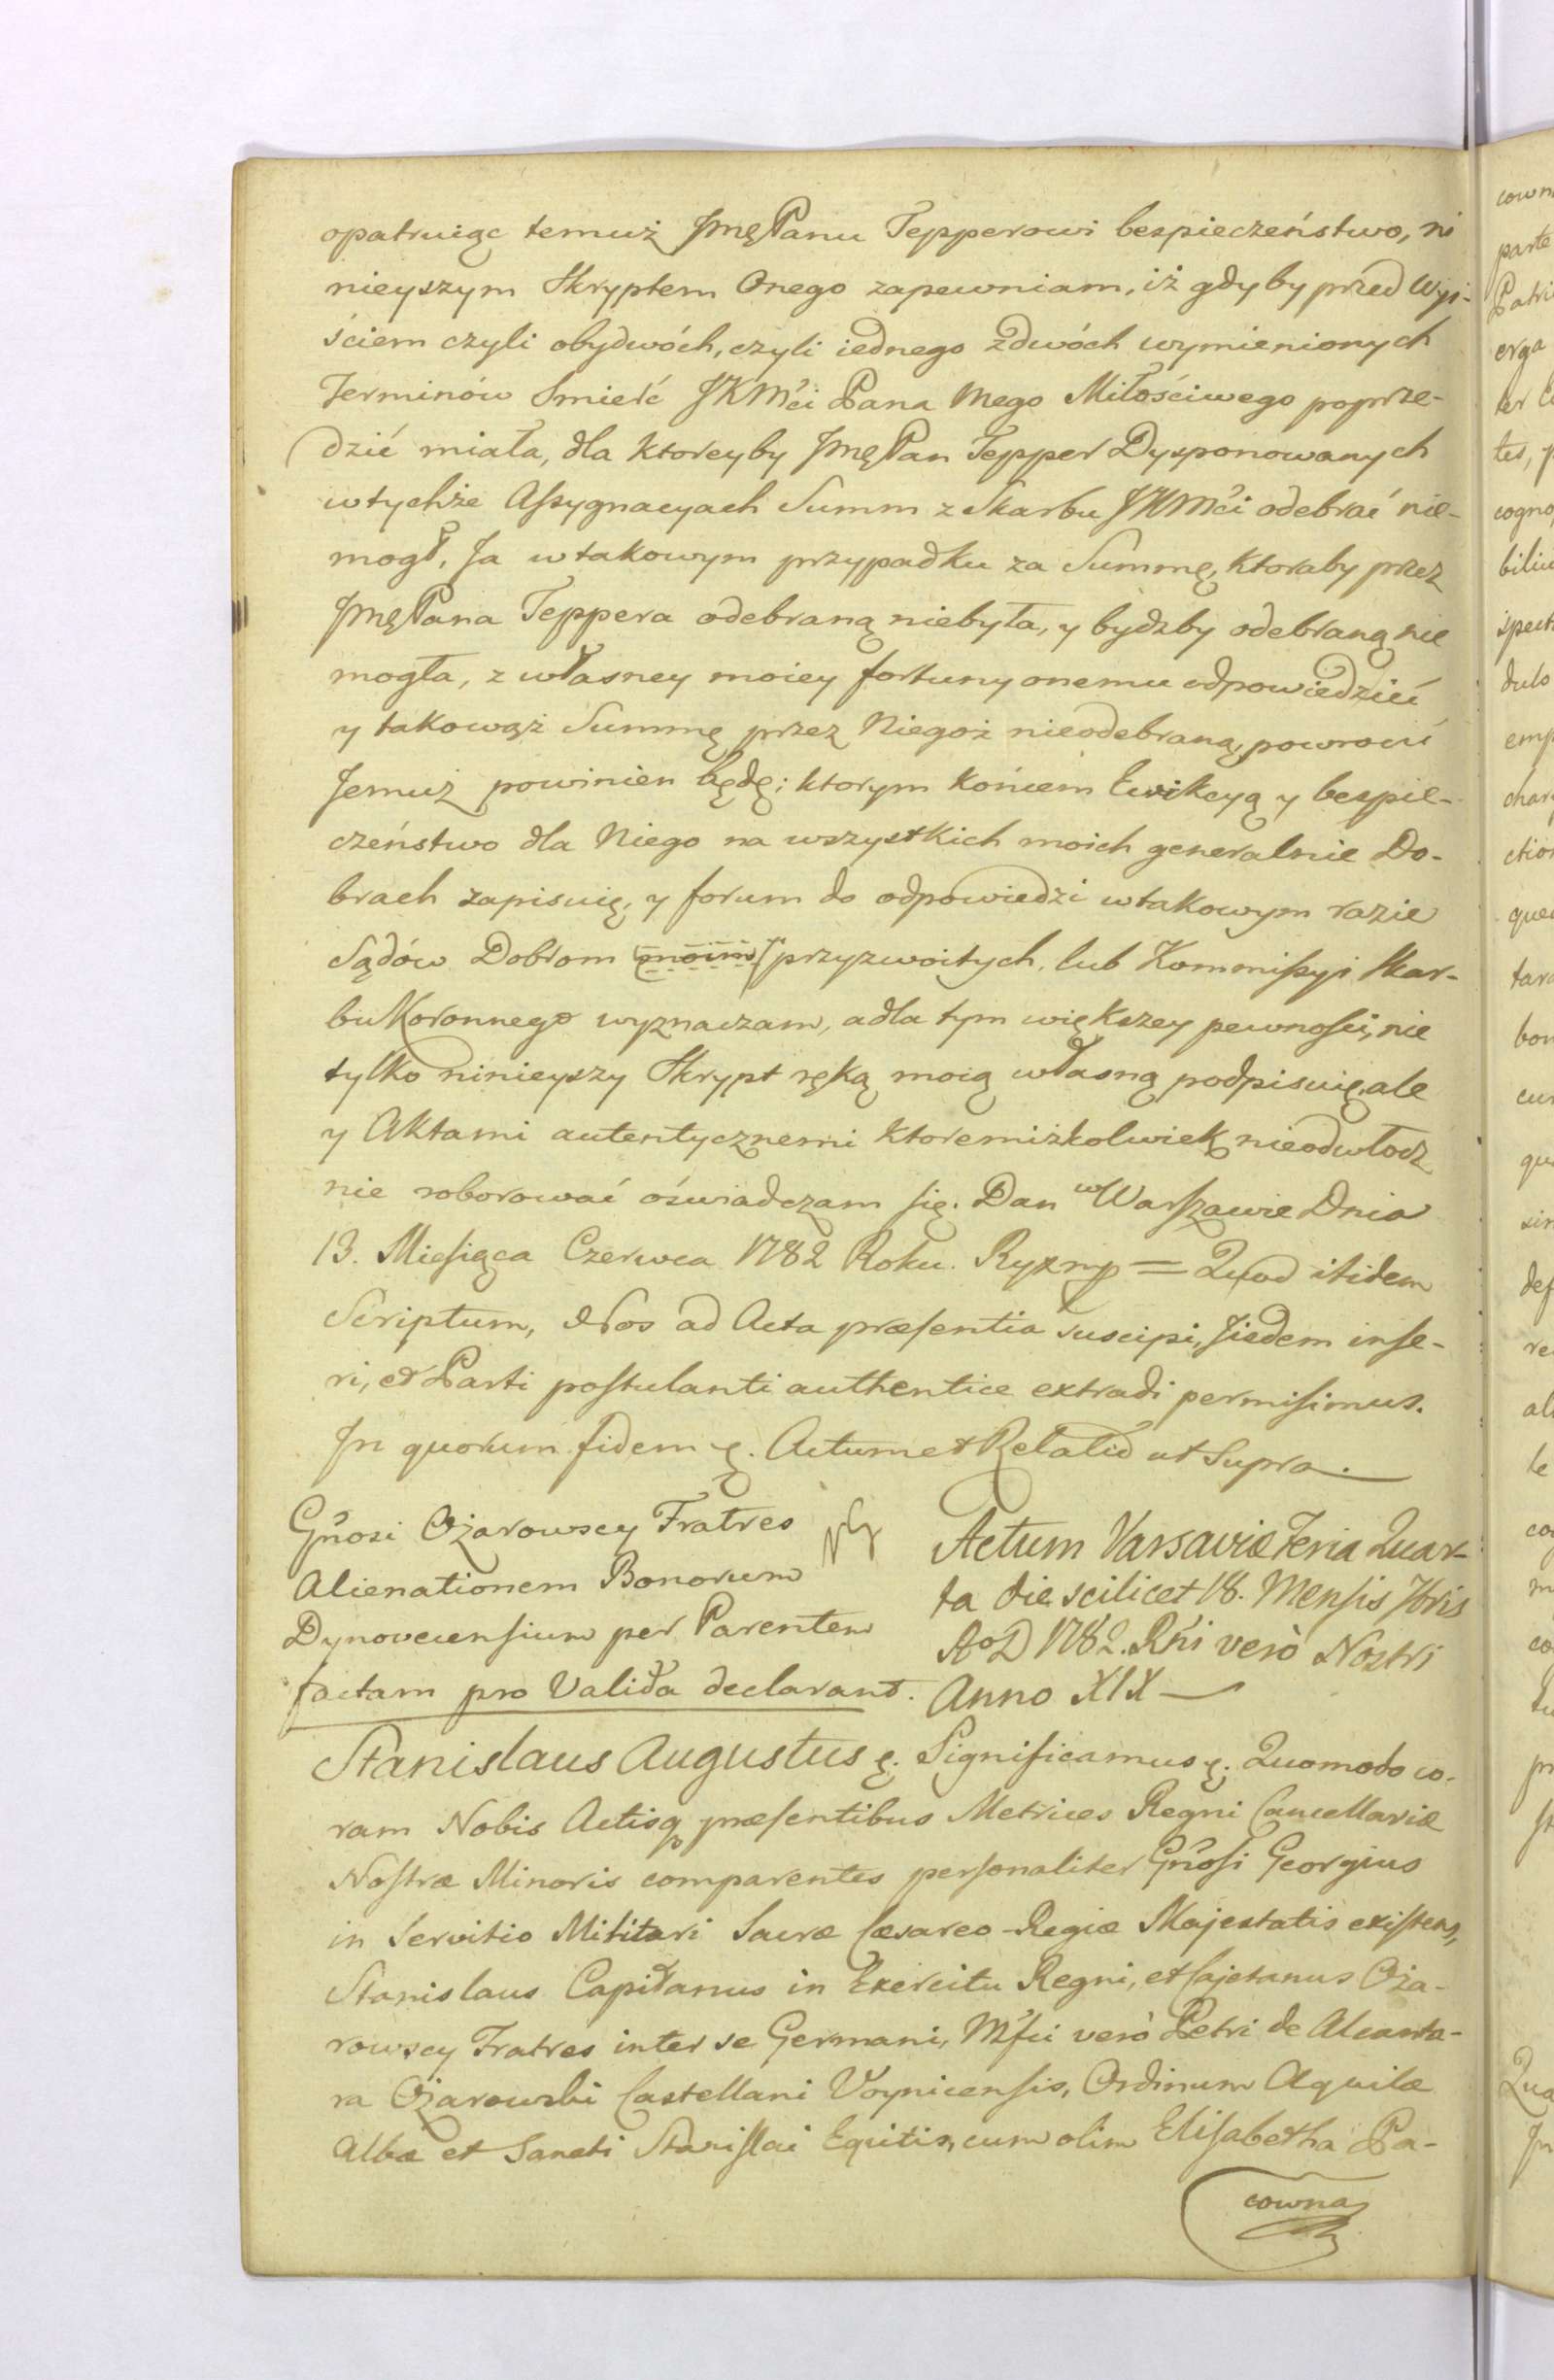 opatruiąc temuż Jmę Panu Tepperowi bespieczeństwo, ni
nieyszym Skryptem Onego zapewniam, iż gdyby przed Wyi-
ściem czyli obydwóch, czyli iednego z dwóch wymienionych
Terminów Smierć JKMći Pana Mego Miłościwego poprze-
dzić miała, dla ktoreyby Jmę Pan Tepper Dysponowanych
w tychże Assygnacyach Summ z Skarbu JKMći odebrać nie-
mogł, Ja w takowym przypadku za Summę, ktoraby przez
Jmę Pana Teppera odebraną niebyła, y bydźby odebraną nie
mogła, z własney moiey fortuny onemu odpowiedzieć
y takowąż Summę przez Niegoż nieodebraną, powrocić
Jemuż powinien będę; ktorym końcem Ewikcyą y bespie-
czeństwo dla Niego na wszystkich moich generalnie Do-
brach zapisuię, y forum do odpowiedzi w takowym razie
Sądów Dobrom moim przyzwoitych, lub Kommissyi Skar-
bu Koronnego wyznaczam, a dla tym większey pewności, nie
tylko ninieyszy Skrypt ręką moią własną podpisuię, ale
y Aktami autentycznemi ktoremiżkolwiek nieodwłocz
nie roborować oświadczam się. Dan w Warszawie Dnia
13. Miesiąca Czerwca 1782 Roku. Ryx mp = Quod itidem
Scriptum, Nos ad Acta præsentia suscipi, Jisdem inse-
ri, et Parti postulanti authentice extradi permisimus.
In quorum fidem ę. Actum et Relatio ut Supra.
Gñosi Ożarowscy Fratres
Alienationem Bonorum
Dynovecensium per Parentem
factam pro Valida declarant.
Actum Varsaviæ Feria Quar-
ta die scilicet 18. Mensis 7bris
AoD 1782. Rñi verò Nostri
Anno XIX
Stanislaus Augustus ę. Significamus ę. Quomodo co-
ram Nobis Actisq præsentibus Metrices Regni Cancellariæ
Nostræ Minoris comparentes personaliter Gñosi Georgius
in Servitio Militari Sacræ Cæsareo-Regiæ Majestatis existens,
Stanislaus Capitanus in Exercitu Regni, et Cajetanus Oża-
rowscy Fratres inter se Germani, Mfci verò Petri de Alcanta-
ra Ożarowski Castellani Voynicensis, Ordinum Aquilæ
Albæ et Sancti Stanislai Equitis, cum olim Elisabetha Pa-
cowna